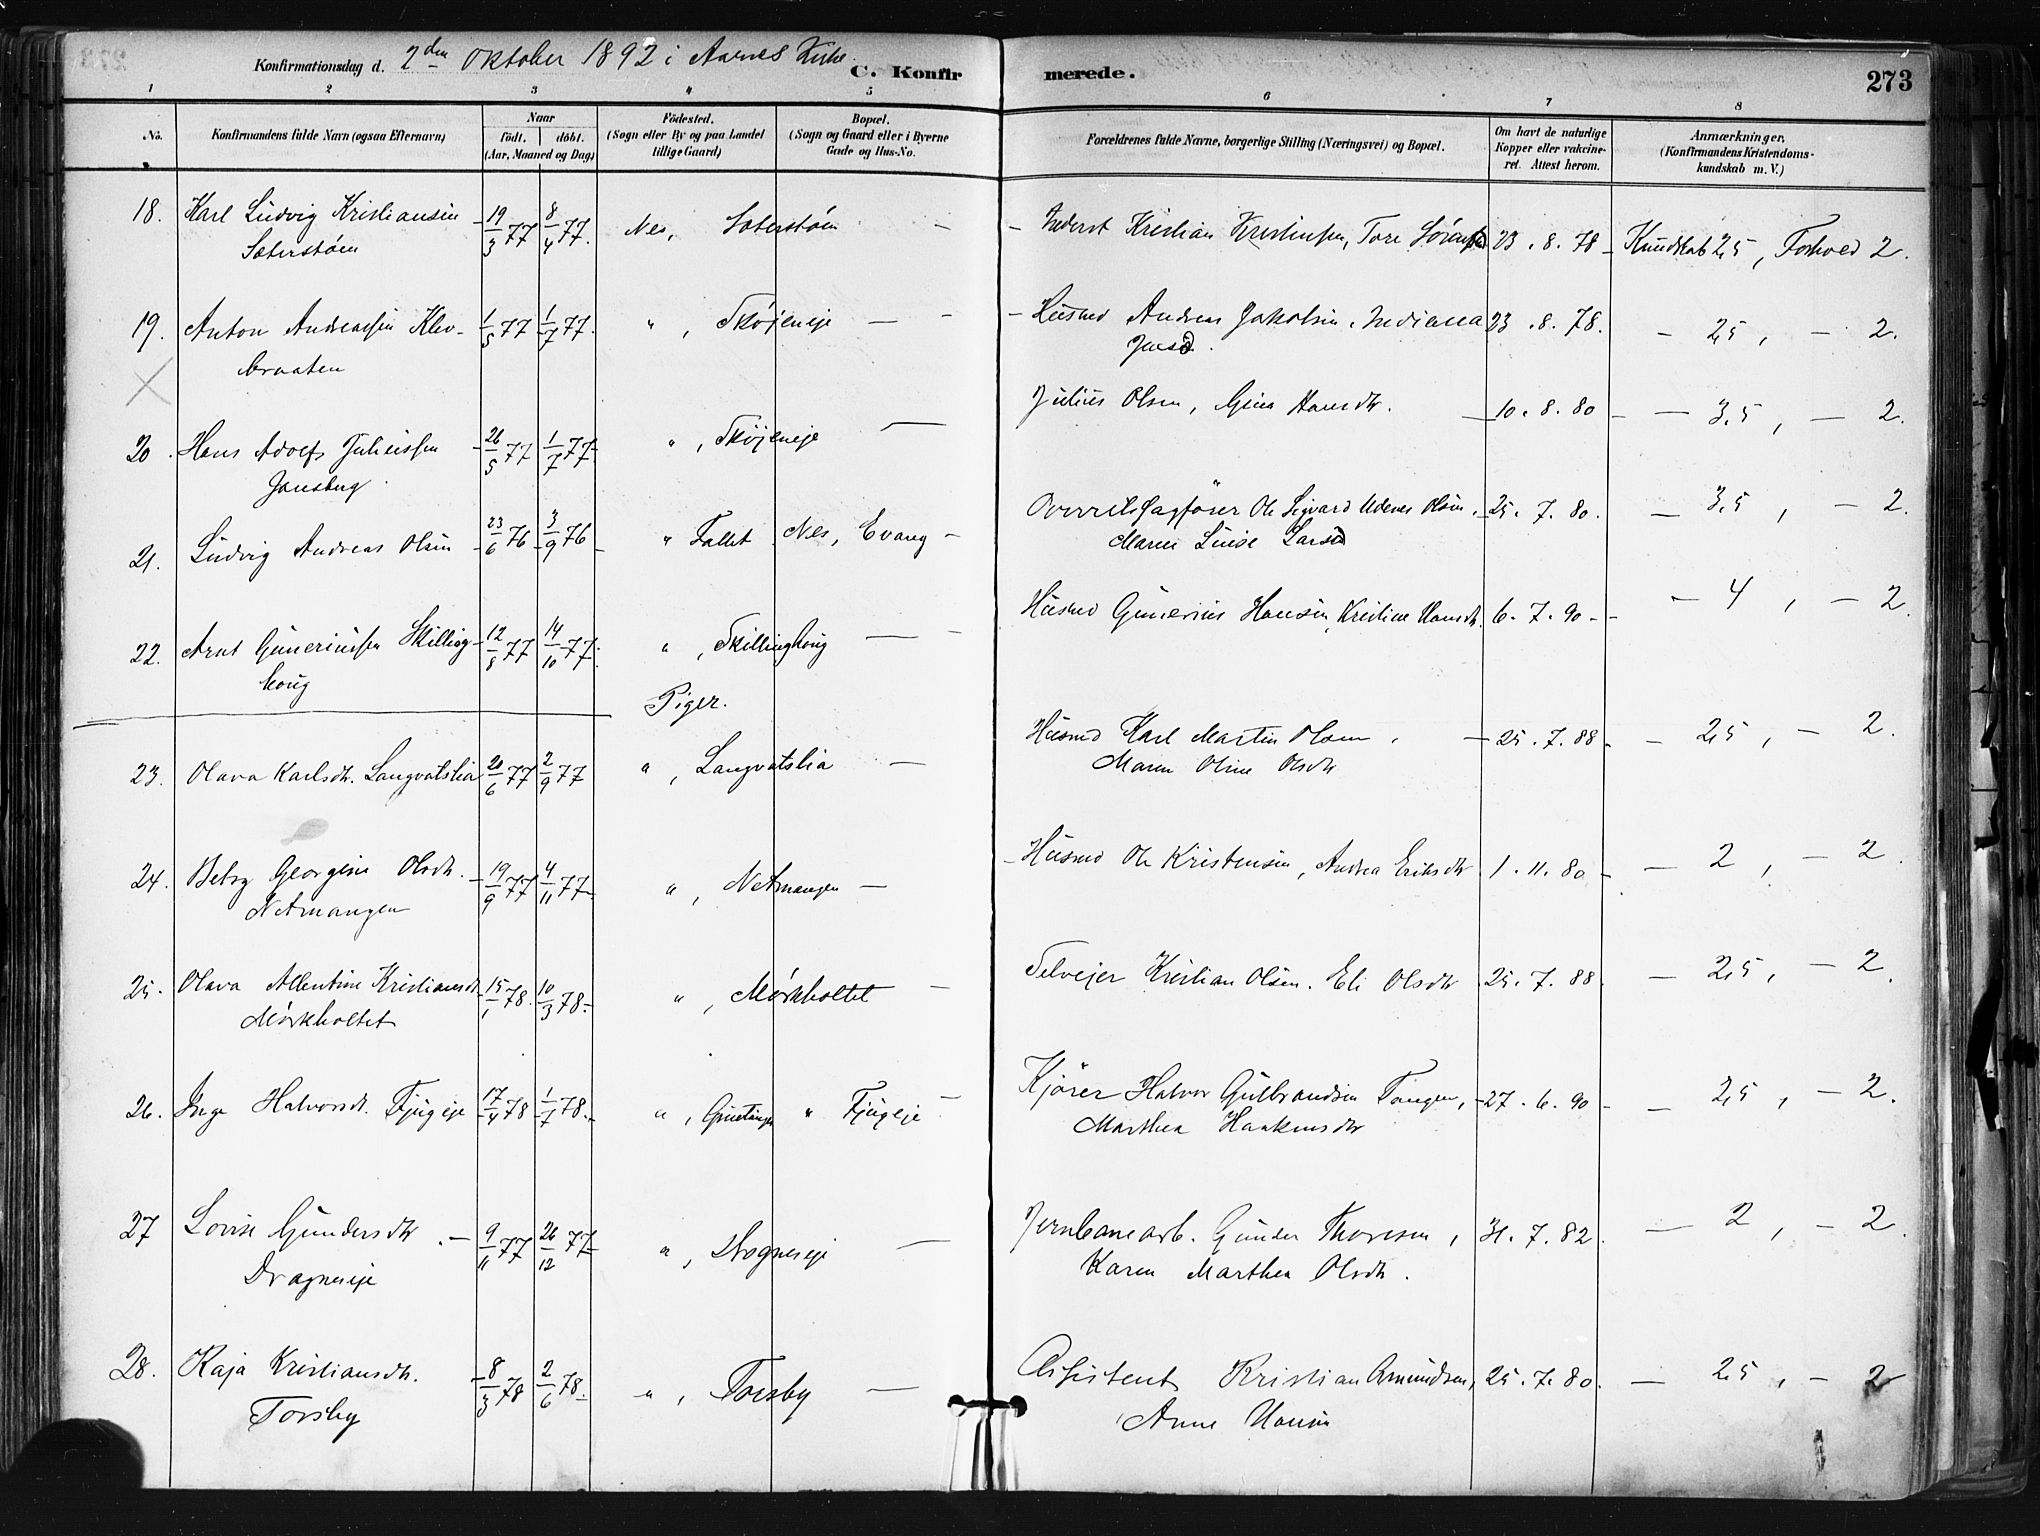 Konfirmationsdag d. 2den Oktober 1892 i Aarnes Kirke
C. Konfirmerede.
273
1 2 3 4 5 6 7 8
No.
Konfirmandens fulde Navn (ogsaa Efternavn)
Naar
født. døbt.
(Aar, Maaned og Dag)
Fødested.
(Sogn eller By og paa Landet
tillige Gaard)
Bopæl.
(Sogn og Gaard eller i Byerne
Gade og Hus-No.
Forældrenes fulde Navne, borgerlige Stilling (Næringsvei) og Bopæl.
Om havt de naturlige
Kopper eller vakcine-
ret. Attest herom.
Anmærkninger,
(Konfirmandens Kristendoms-
kundskab m. V.)
18. Karl Ludvig Kristiansen 19/3 77 8/4 77. Nes, Saterstøen - Inderst Kristian Kristensen, Tore Sørensd 23.8.78 - Kundskab 2,5, Forhold 2.
Saterstøen
19. Anton Andreassen Klev- 1/5 77 1/7 77. " , Skøjeneje - Husmd Andreas Jakobsen, Indiana 23.8.78. - 2,5, - 2.
braaten
Jensd.
20. Hans Adolf Juliussen 26/5 77 1/7 77 " , Skøjeneje - Julius Olsen, Gina Hansdtr. - 10.8.80 - 3,5, - 2.
Jansberg
21. Ludvig Andreas Olsen 23/6 76 3/9 76 " Fallet Nes, Evang - Overretssagfører Ole Sigvard Udenes Olsen, 25.7.80. - 3,5, - 2.
Maren Luise Larsd
22. Arnt Guneriussen Skilling- 12/8 77 14/10 77. " , Skillinghoug - Husmd Gunerius Hansen, Kristine Hansdtr. 6.7.90 - 4, - 2.
houg
Piger.
23. Olava Karlsdtr. Langvatslia 20/6 77 2/9 77 " , Langvatslia - Husmd Karl Martin Olsen, - 25.7.88 - 2,5, - 2.
Maren Oline Olsdtr
24. Betsy Georgine Olsdtr. 19/9 77 4/11 77 " , Netmangen - Husmd Ole Kristensen, Andrea Eriksdtr 1.11.80 - 2, - 2.
Netmangen
25. Olava Albertine Kristiansdtr 15/1 78. 10/3 78 - " , Mørkholtet - Selvejer Kristian Olsen. Eli Olsdtr 25.7.88. - 2,5, - 2.
Mørkholtet
26. Inge Halvorsdt. Fjugeje 17/4 78 1/7 78. " , " Fjugeje - Kjører Halvor Gulbrandsen Tangen, 27.6.90 - 2,5, - 2.
Marthea Haakensdtr
27 Lovise Gundersdtr. - 9/11 77 26/12 77 " , Dragneseje - Jernbanearb. Gunder Thoresen, 31.7.82. - 2, - 2.
Dragneseje
Karen Marthea Olsdtr.
28. Kaja Kristiansdtr. 8/3 78 2/6 78. " , Torsby - Assistent Kristian Amundsen, 25.7.80. - 2,5, - 2
Torsby
Anne Hansen